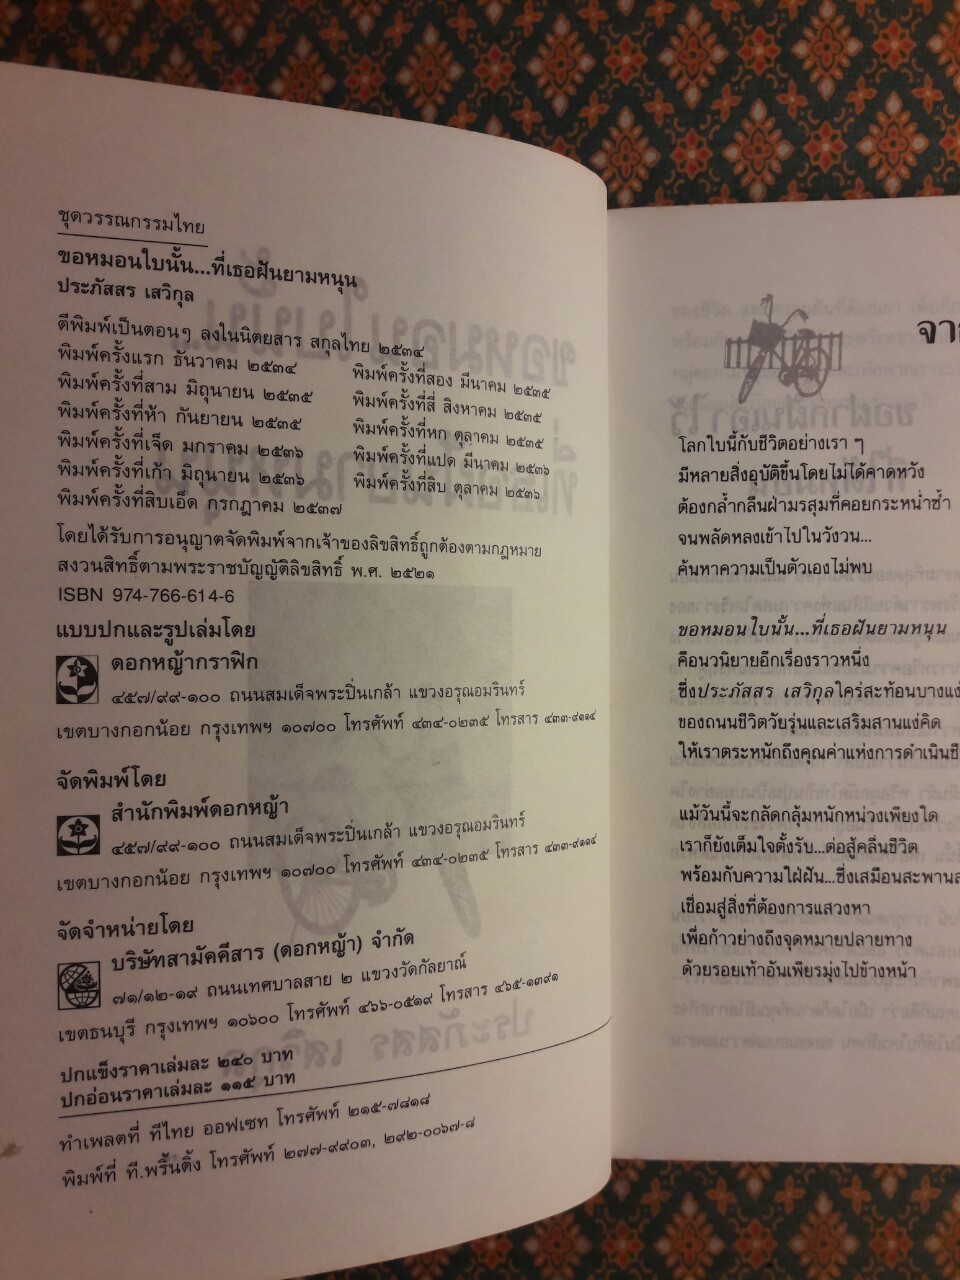 ชุดวรรณกรรมไทย
ขอหมอนใบนั้น...ที่เธอฝันยามหนุน
ประภัสสร เสวิกุล
ตีพิมพ์เป็นตอนๆ ลงในนิตยสาร สกุลไทย ๒๕๓๔
พิมพ์ครั้งแรก ธันวาคม ๒๕๓๔ พิมพ์ครั้งที่สอง มีนาคม ๒๕๓๕
พิมพ์ครั้งที่สาม มิถุนายน ๒๕๓๕ พิมพ์ครั้งที่สี่ สิงหาคม ๒๕๓๕
พิมพ์ครั้งที่ห้า กันยายน ๒๕๓๕ พิมพ์ครั้งที่หก ตุลาคม ๒๕๓๕
พิมพ์ครั้งที่เจ็ด มกราคม ๒๕๓๖ พิมพ์ครั้งที่แปด มีนาคม ๒๕๓๖
พิมพ์ครั้งที่เก้า มิถุนายน ๒๕๓๖ พิมพ์ครั้งที่สิบ ตุลาคม ๒๕๓๖
พิมพ์ครั้งที่สิบเอ็ด กรกฎาคม ๒๕๓๗
โดยได้รับการอนุญาตจัดพิมพ์จากเจ้าของลิขสิทธิ์ถูกต้องตามกฎหมาย
สงวนสิทธิ์ตามพระราชบัญญัติลิขสิทธิ์ พ.ศ. ๒๕๒๑
ISBN 974-766-614-6
แบบปกและรูปเล่มโดย
ดอกหญ้ากราฟิก
๔๕๗/๙๙-๑๐๐ ถนนสมเด็จพระปิ่นเกล้า แขวงอรุณอมรินทร์
เขตบางกอกน้อย กรุงเทพฯ ๑๐๗๐๐ โทรศัพท์ ๔๓๔-๐๒๓๕ โทรสาร ๔๓๓-๙๑๑๔
จัดพิมพ์โดย
สำนักพิมพ์ดอกหญ้า
๔๕๗/๙๙-๑๐๐ ถนนสมเด็จพระปิ่นเกล้า แขวงอรุณอมรินทร์
เขตบางกอกน้อย กรุงเทพฯ ๑๐๗๐๐ โทรศัพท์ ๔๓๔-๐๒๓๕ โทรสาร ๔๓๓-๙๑๑๔
จัดจำหน่ายโดย
บริษัทสามัคคีสาร (ดอกหญ้า) จำกัด
๗๑/๑๒-๑๙ ถนนเทศบาลสาย ๒ แขวงวัดกัลยาณ์
เขตธนบุรี กรุงเทพฯ ๑๐๖๐๐ โทรศัพท์ ๔๖๖-๐๕๑๙ โทรสาร ๔๖๕-๑๓๙๑
ปกแข็งราคาเล่มละ ๒๔๐ บาท
ปกอ่อนราคาเล่มละ ๑๑๕ บาท
ทำเพลตที่ ทีไทย ออฟเซท โทรศัพท์ ๒๑๕-๗๘๑๘
พิมพ์ที่ ที.พริ้นติ้ง โทรศัพท์ ๒๗๗-๙๙๐๓, ๒๙๒-๐๐๖๗-๘
โลกใบนี้กับชีวิตอย่างเรา ๆ
มีหลายสิ่งอุบัติขึ้นโดยไม่ได้คาดหวัง
ต้องกล้ำกลืนฝ่ามรสุมที่คอยกระหน่ำซ้ำ
จนพลัดหลงเข้าไปในวังวน...
ค้นหาความเป็นตัวเองไม่พบ
ขอหมอนใบนั้น...ที่เธอฝันยามหนุน
คือนวนิยายอีกเรื่องราวหนึ่ง
ซึ่งประภัสสร เสวิกุลใคร่สะท้อนบางแง่
ของถนนชีวิตวัยรุ่นและเสริมสานแง่คิด
ให้เราตระหนักถึงคุณค่าแห่งการดำเนินชี
แม้วันนี้จะกลัดกลุ้มหนักหน่วงเพียงใด
เราก็ยังเต็มใจตั้งรับ...ต่อสู้คลื่นชีวิต
พร้อมกับความใฝ่ฝัน...ซึ่งเสมือนสะพาน
เชื่อมสู่สิ่งที่ต้องการแสวงหา
เพื่อก้าวย่างถึงจุดหมายปลายทาง
ด้วยรอยเท้าอันเพียรมุ่งไปข้างหน้า